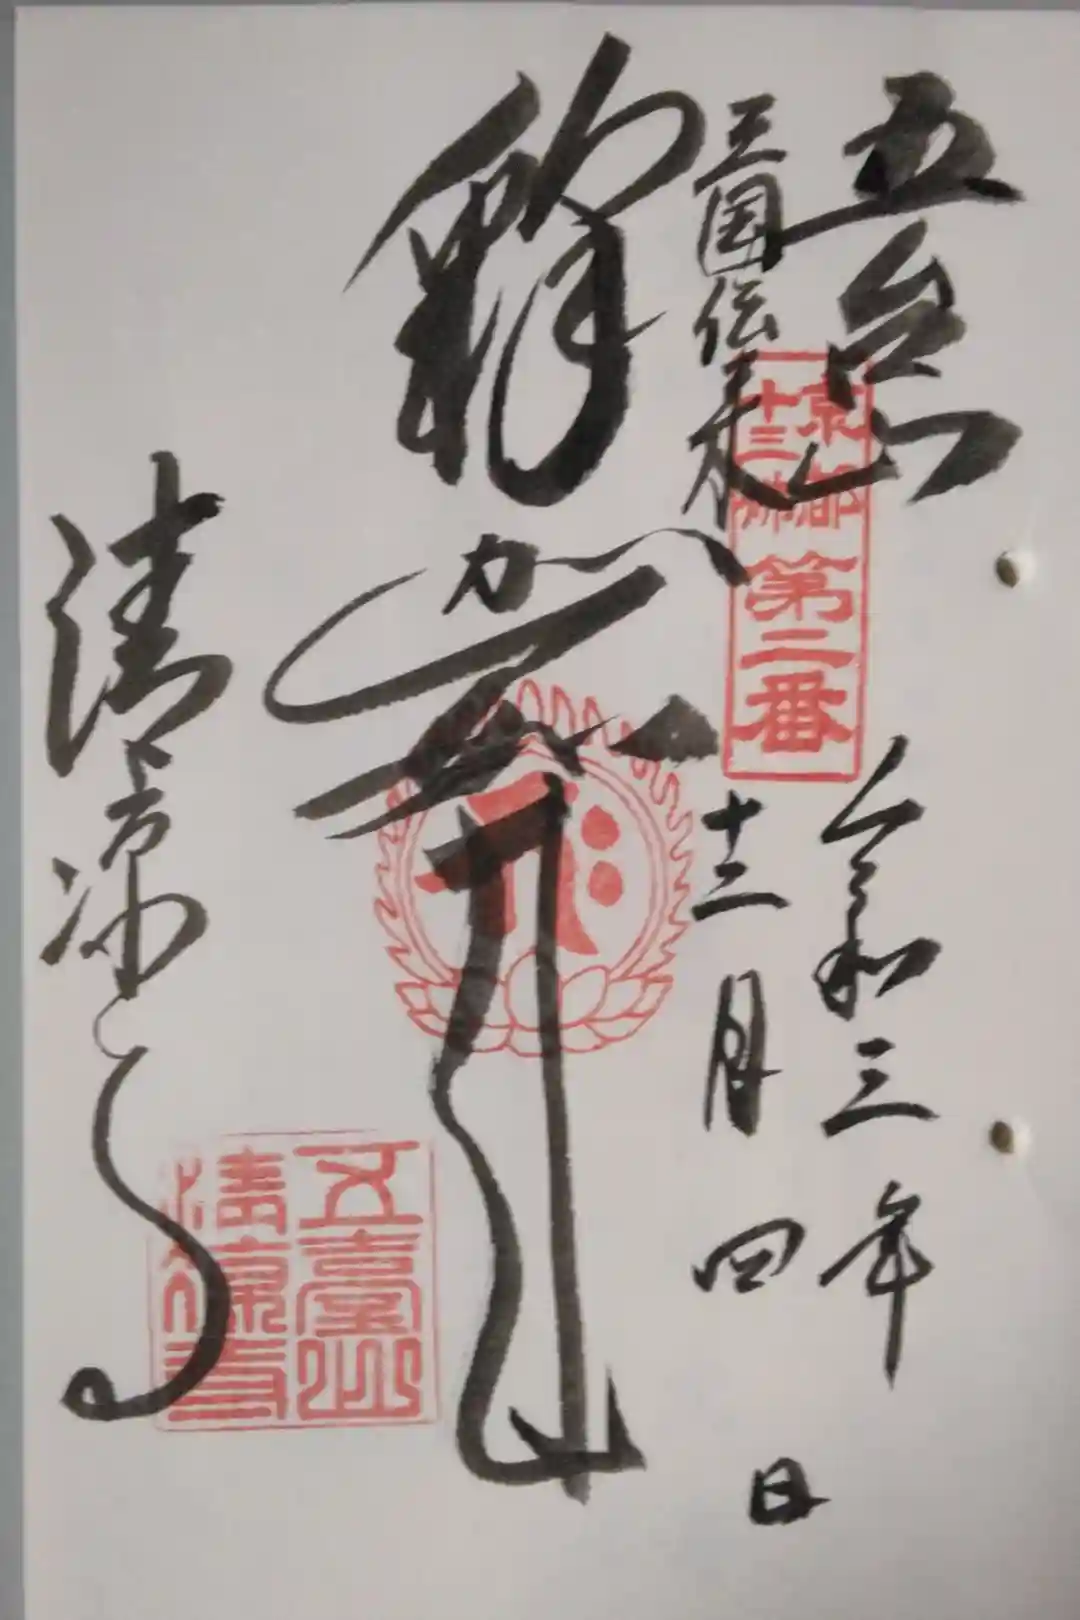 五台山
三国伝来
京都
十三佛
第二番
令和三年
十二月四日
釋迦
清凉寺
五臺山
清凉寺